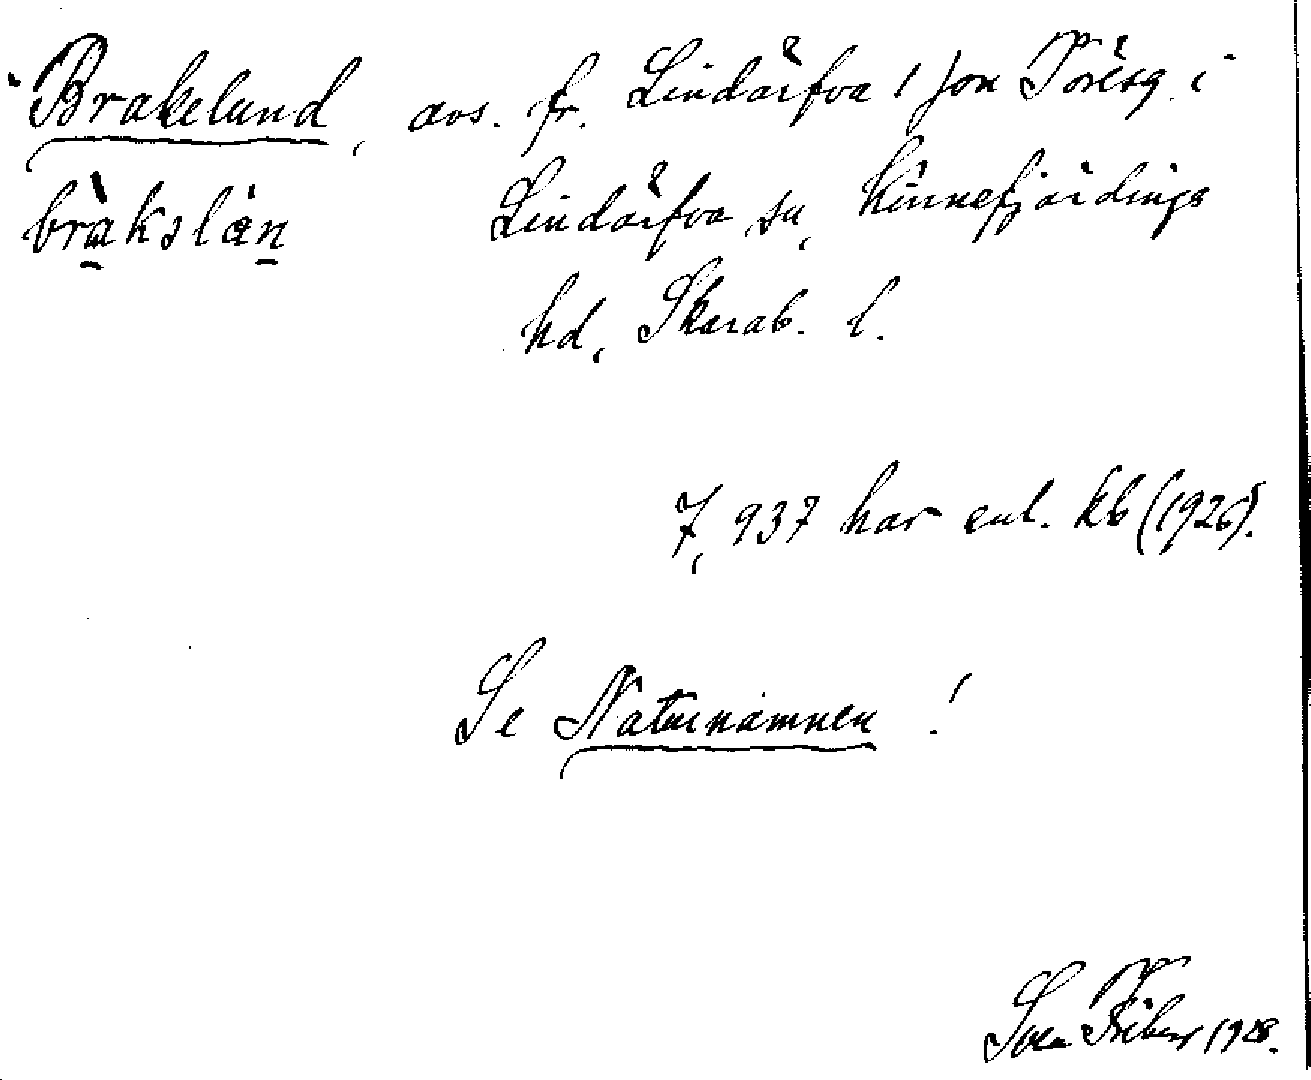 Brakelund, avs. fr. Lindärfva 1 Jon Torësg. i
bràkslàn Lindärfva sn, Kinnefjärdings
hd, Skarab. l.
7,937 har enl. kb (1926).
Se Naturnamnen!
Sven 1928.